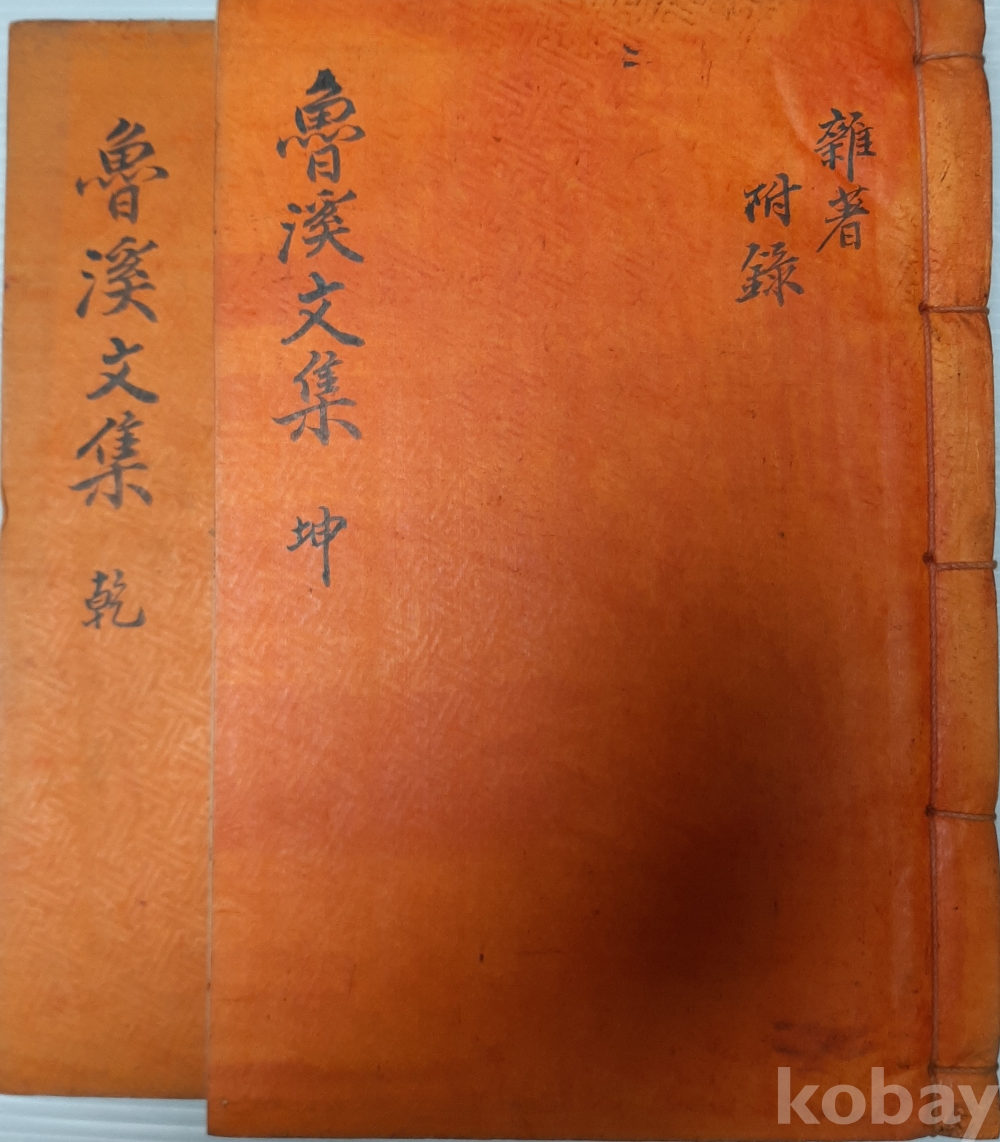 雜著
附錄
魯溪文集 坤
魯溪文集 乾
kobay